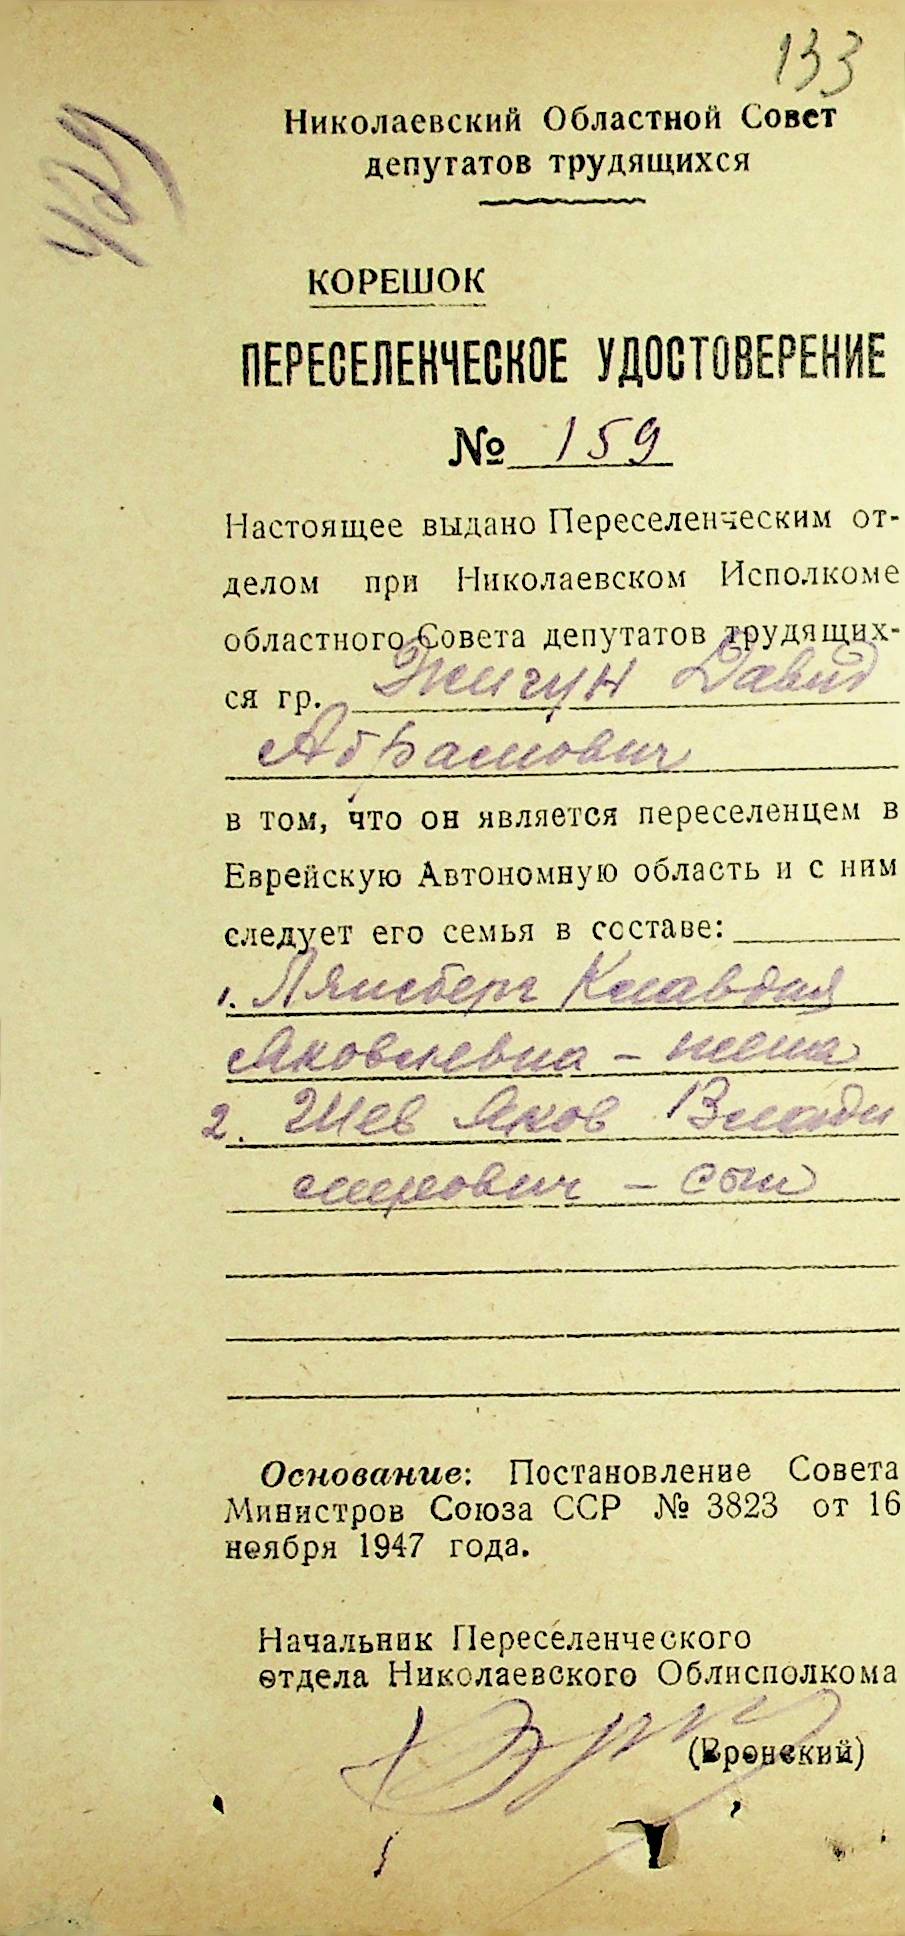 133
429
Николаевский Областной Совет
депутатов трудящихся
КОРЕШОК
ПЕРЕСЕЛЕНЧЕСКОЕ УДОСТОВЕРЕНИЕ
№ 159
Настоящее выдано Переселенческим от-
делом при Николаевском Исполкоме
областного Совета депутатов трудящих-
ся гр. Жигун Давид
Абрамович
в том, что он является переселенцем в
Еврейскую Автономную область и с ним
следует его семья в составе:
1. Лямберг Клавдия
Яковлевна - жена
2. Шев Яков Влади
мирович - сын
Основание: Постановление Совета
Министров Союза ССР № 3823 от 16
ноября 1947 года.
Начальник Переселенческого
отдела Николаевского Облисполкома
(Вронский)